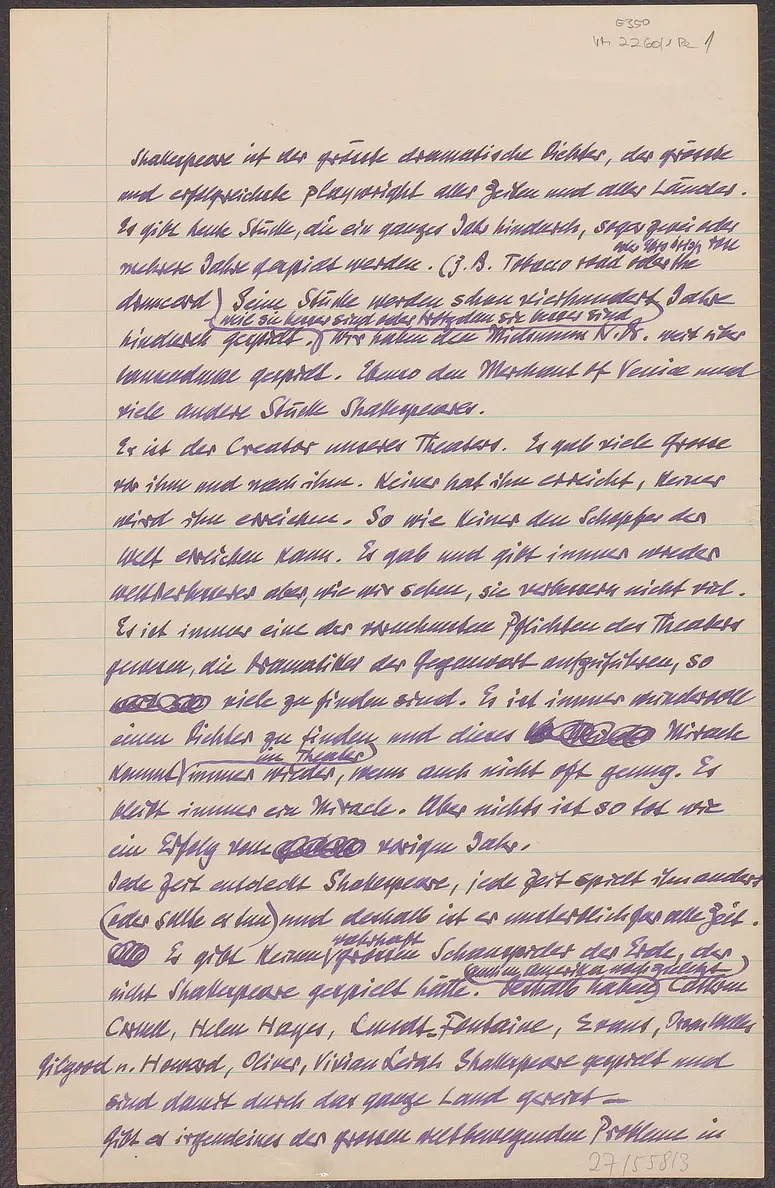 E350
VM 2260/1 Re 1
Shakespeare ist der grösste dramatische Dichter, der grösste
und erfolgreichste playwright aller Zeiten und aller Länder.
Es gibt heute Stücke, die ein ganzes Jahr hindurch, sogar zwei oder
oder Abys Irish rose
mehrere Jahre gespielt werden. (z. B. Tobacco road oder the
druncard) Seine Stücke werden schon vierhundert Jahre
weil sie besser sind oder trotzdem sie besser sind
hindurch gespielt. Wir haben den Midsummer N. Dr. weit über
tausendmal gespielt. Ebenso den Merchant of Venice und
viele andere Stücke Shakespeares.
Er ist der Creator unseres Theaters. Es gab viele Grosse
vor ihm und nach ihm. Keiner hat ihn erreicht, Keiner
wird ihn erreichen. So wie Keiner den Schöpfer der
Welt erreichen kann. Es gab und gibt immer wieder
Weltverbesserer aber, wie wir sehen, sie verbessern nicht viel.
Es ist immer eine der vornehmsten Pflichten des Theaters
gewesen, die Dramatiker der Gegenwart aufzuführen, so
viele zu finden sind. Es ist immer wundervoll
einen Dichter zu finden und dieses Mirach
im Theater
kommt immer wieder, wenn auch nicht oft genug. Es
bleibt immer ein Mirach. Aber nichts ist so tot wie
ein Erfolg vom vorigen Jahr.
Jede Zeit entdeckt Shakespeare, jede Zeit spielt ihn anders
(oder sollte es tun) und deshalb ist er unsterblich für alle Zeit.
wahrhaft
Es gibt keinen grossen Schauspieler der Erde, der
(um in Amerika noch zuletzt)
nicht Shakespeare gespielt hätte. Deshalb haben Catherin
Cornel, Helen Hayes, Lundt-Fontaine, Evans, Orson Welles
Gilgood u. Howard, Oliver, Vivian Leigh Shakespeare gespielt und
sind damit durch das ganze Land gereist –
Gibt es irgendeines der grossen weltbewegenden Probleme in
27/5581/3